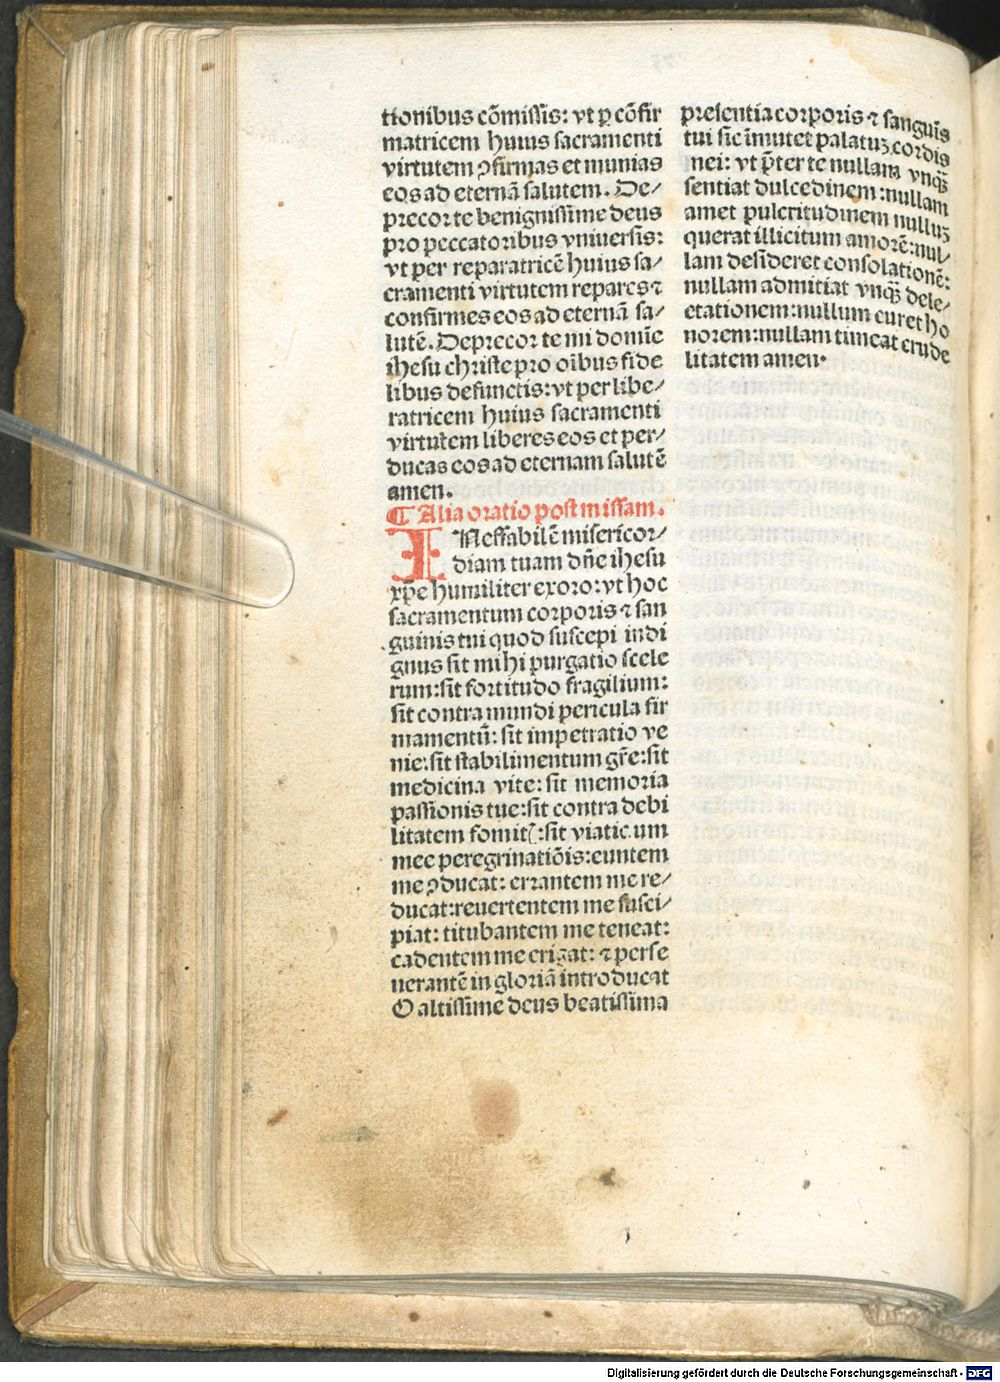 tionibus cõmissis: vt ꝑ cõfir
matricem huius sacramenti
virtutem ꝯfirmas et munias
eos ad eternã salutem. De/
precor te benignissime deus
pro peccatoribus vniuersis:
vt per reparatricẽ huius sa/
cramenti virtutem repares ⁊
confirmes eos ad eternã sa/
lutẽ. Deprecor te mi domĩe
ihesu christe pro oĩbus fide
libus defunctis: vt per libe/
ratricem huius sacramenti
virtutem liberes eos et per/
ducas eos ad eternam salutẽ
amen.
¶ Alia oratio post missam.
INeffabilẽ misericor/
diam tuam dñe ihesu
xp̃e humiliter exoro: vt hoc
sacramentum corporis ⁊ san
guinis tui quod suscepi indi
gnus sit mihi purgatio scele
rum: sit fortitudo fragilium:
sit contra mundi pericula fir
mamentũ: sit impetratio ve
nie: sit stabilimentum gr̃e: sit
medicina vite: sit memoria
passionis tue: sit contra debi
litatem fomitꝭ: sit viaticum
mee peregrinatiõis: euntem
me ꝯducat: errantem me re/
ducat: reuertentem me susci/
piat: titubantem me teneat:
cadentem me erigat: ⁊ perse
uerantẽ in gloriã introducat
O altissime deus beatissima
presentia corporis ⁊ sanguĩs
tui sic ĩmutet palatuꝫ cordis
mei: vt p̃ter te nullam vnqꝫ
sentiat dulcedinem: nullam
amet pulcritudinem nulluꝫ
querat illicitum amorẽ: nul/
lam desideret consolationẽ:
nullam admitiat vnqꝫ dele/
ctationem: nullum curet ho
norem: nullam timeat crude
litatem amen.
Digitalisierung gefördert durch die Deutsche Forschungsgemeinschaft - DFG